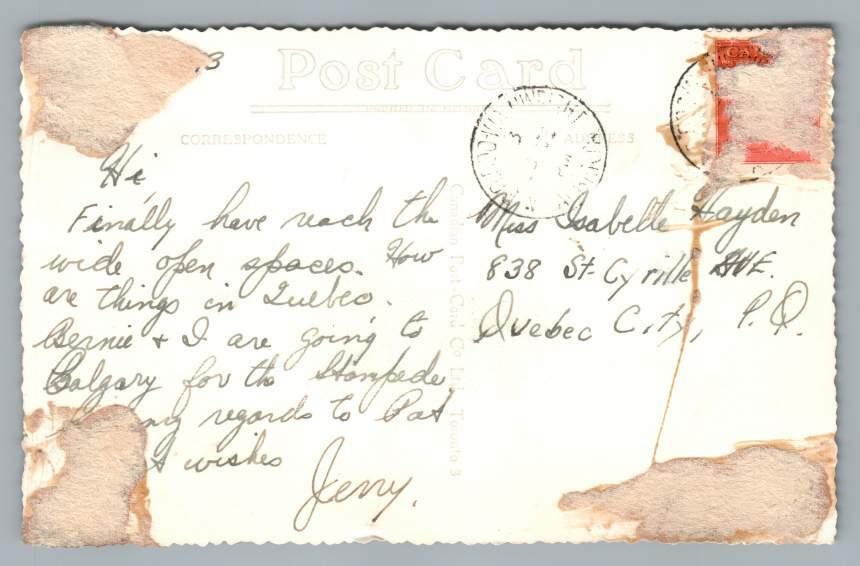 Post Card
CORRESPONDENCE
ADDRESS
Hi,
Finally have reach the
wide open spaces. How
are things in Quebec.
Bernie + I are going to
Calgary for the Stampede
my regards to Pat
wishes
Jerry.
Canadian Post Card Co Ltd. Toronto 3
Miss Isabelle Hayden
838 St. Cyrille AVE.
Quebec City, P.Q.